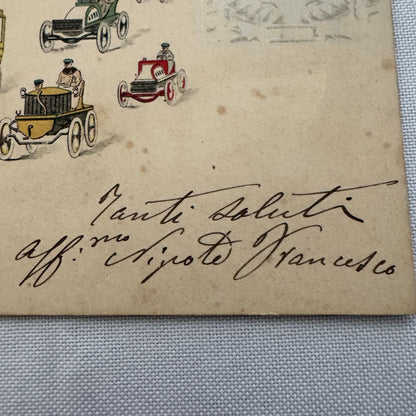 Tanti saluti
aff:mo Nipote Francesco